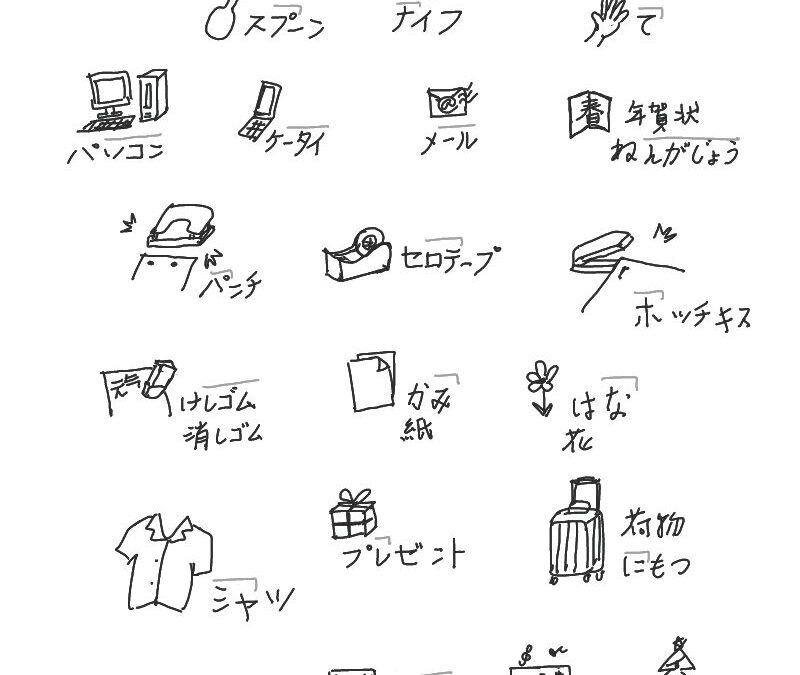 スプーン
ナイフ
て
パソコン
ケータイ
メール
春
年賀状
ねんがじょう
パンチ
セロテープ
ホッチキス
元気
けしゴム
消しゴム
かみ
紙
はな
花
シャツ
プレゼント
荷物
にもつ